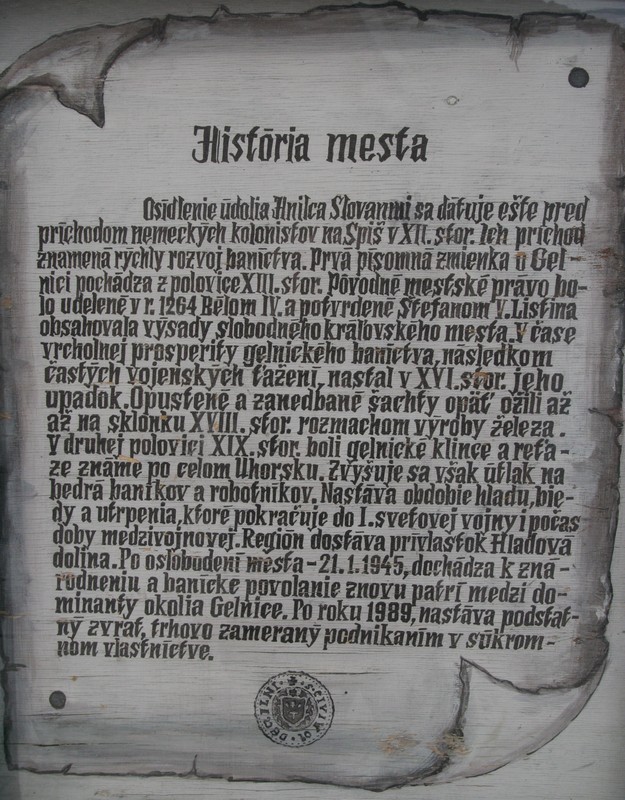 História mesta
Osídlenie údolia Hnilca Slovanmi sa dátuje ešte pred
príchodom nemeckých kolonistov na Spiš v XII. stor. Ich príchod
znamená rýchly rozvoj baníctva. Prvá písomná zmienka o Gel-
nici pochádza z polovice XIII. stor. Pôvodné mestské právo bo-
lo udelené v r. 1264 Bélom IV. a potvrdené Štefanom V. Listina
obsahovala výsady slobodného kráľovského mesta. V čase
vrcholnej prosperity gelnického baníctva, následkom
častých vojenských ťažení, nastal v XVI. stor. jeho
úpadok. Opustené a zanedbané šachty opäť ožili až
až na sklonku XVIII. stor. rozmachom výroby železa.
V druhej polovici XIX. stor. boli gelnické klince a reťa-
ze známe po celom Uhorsku. Zvyšuje sa však útlak na
bedrá baníkov a robotníkov. Nastáva obdobie hladu, bie-
dy a utrpenia, ktoré pokračuje do I. svetovej vojny i počas
doby medzivojnovej. Región dostáva prívlastok Hladová
dolina. Po oslobodení mesta - 21.1.1945, dochádza k zná-
rodneniu a banícke povolanie znovu patrí medzi do-
minanty okolia Gelnice. Po roku 1989, nastáva podstat-
ný zvrat, trhovo zameraný podnikaním v súkrom-
nom vlastníctve.